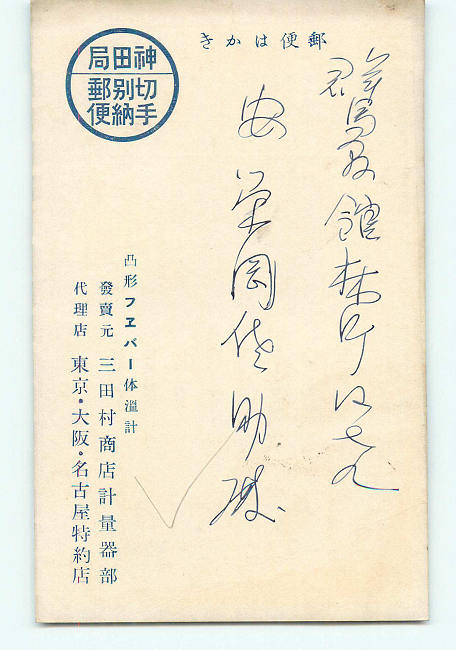 郵便はかき
群馬縣館林町
安楽岡 助様
神田局
切手別納郵便
凸形フヱバー体溫計
發賣元 三田村商店計量器部
代理店 東京・大阪・名古屋特約店